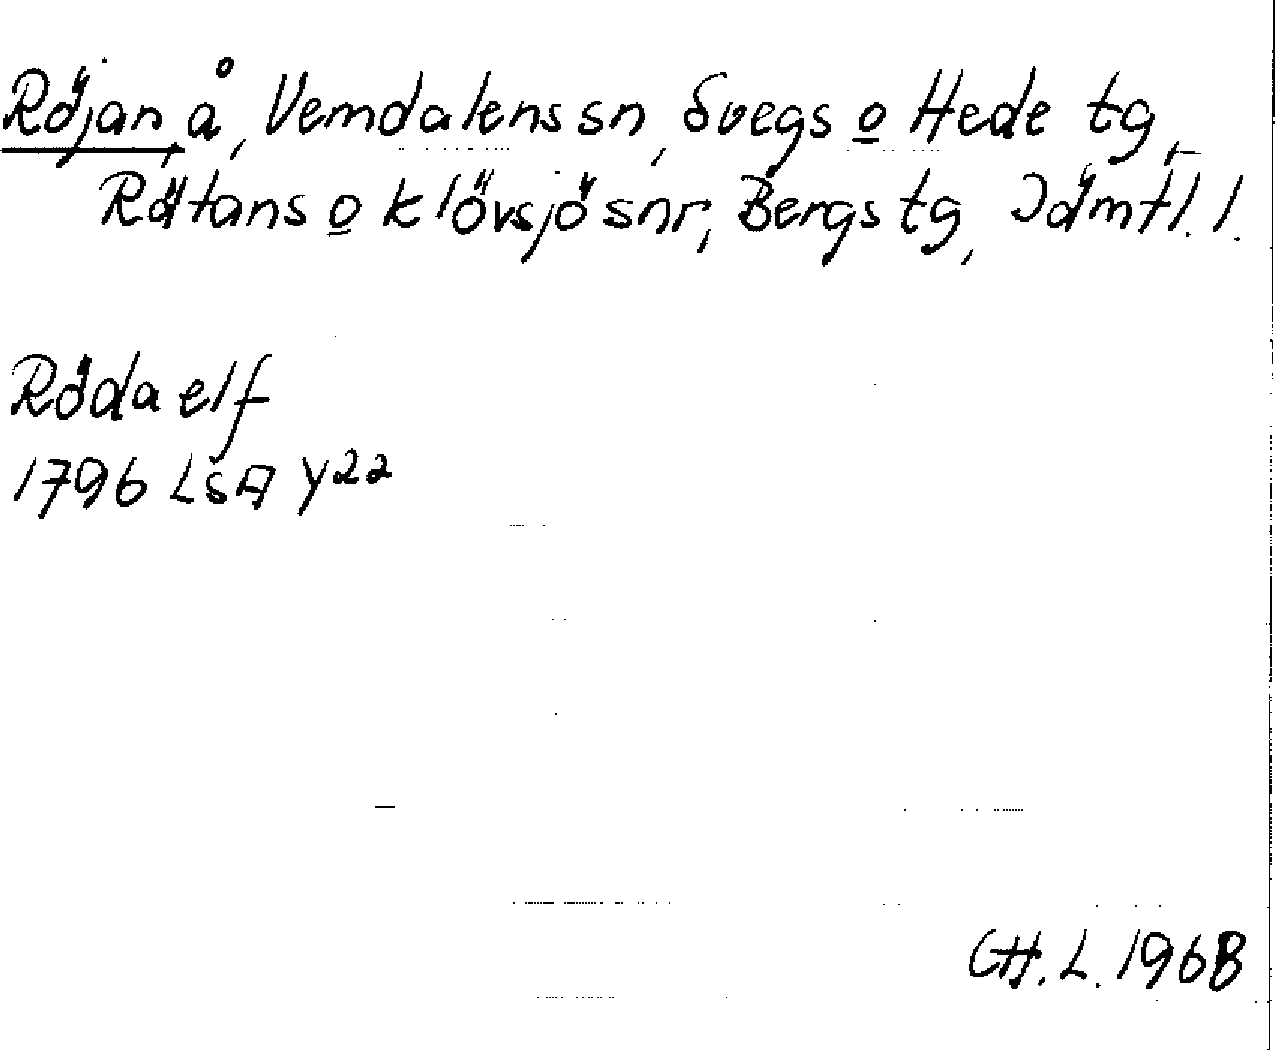 Röjan, å, Vemdalens sn, Svegs o Hede tg,
Rätans o Klövsjö snr, Bergs tg, Jämtl. l.
Röda elf
1796 LSA Y22
CH. L. 1968